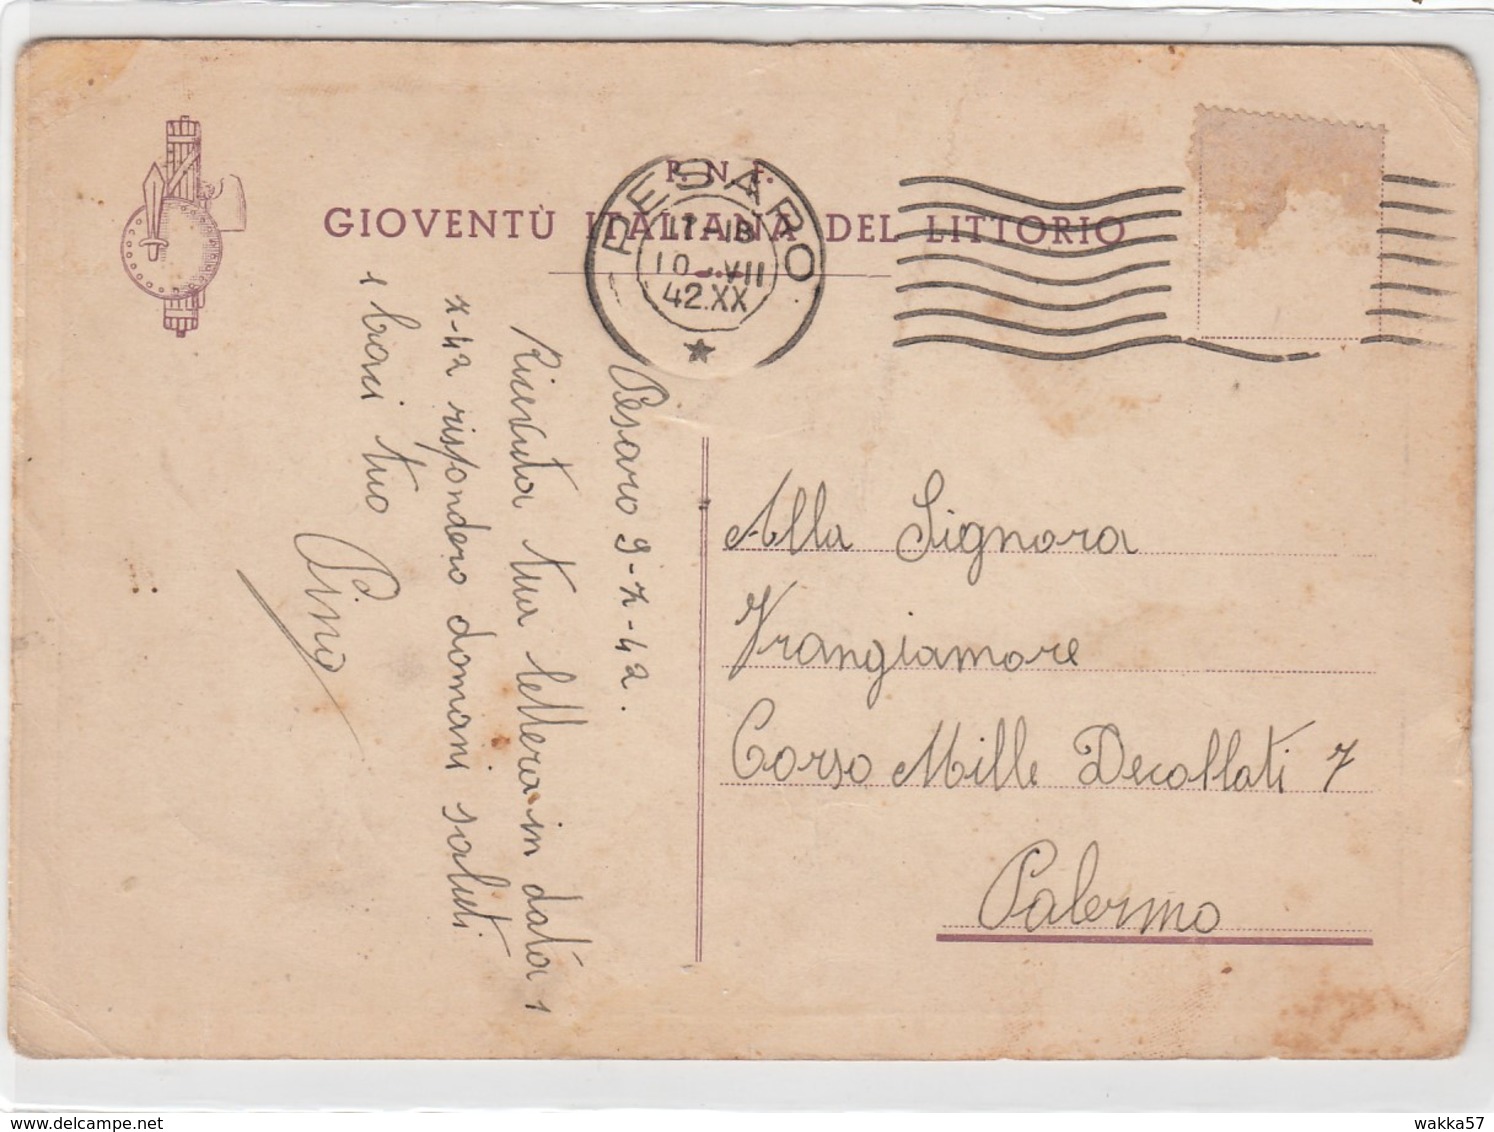 P. N. F.
GIOVENTÙ ITALIANA DEL LITTORIO
PESARO
17-18
10.VII
42.XX
Pesaro 9-7-42.
Ricevuta tua lettera in datá 1
7-42 risponderò domani saluti
1 baci tuo
Pino
Alla Signora
Frangiamore
Corso Mille Decollati 7
Palermo
wakka57